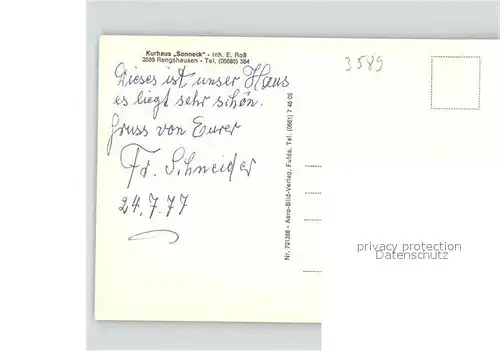 Kurhaus „Sonneck" - Inh. E. Roß
3589 Rengshausen - Tel. (05685) 384
3589
Dieses ist unser Haus
es liegt sehr schön.
Gruss von Eurer
Fr. Schneider
24.7.77
Nr. 791368 - Aero-Bild-Verlag, Fulda, Tel. (0661) 7 46 05
privacy protection
Datenschutz